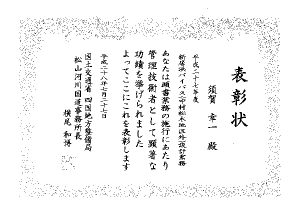 表彰状
須賀 幸一 殿
平成二十七年度
新居浜バイパス(市村松木地区外)設計業務
あなたは頭書業務の施行にあたり
管理技術者として顕著な
功績を挙げられました
よってここにこれを表彰します
平成二十八年七月二十七日
国土交通省 四国地方整備局
松山河川国道事務所長
横尾 和博